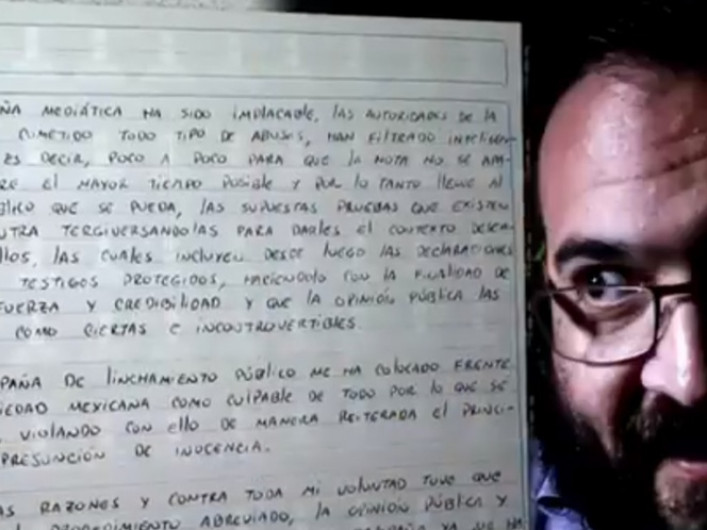 ÑA MEDIÁTICA HA SIDO IMPLACABLE, LAS AUTORIDADES DE LA
COMETIDO TODO TIPO DE ABUSOS, HAN FILTRADO INTELIGEN-
ES DECIR, POCO A POCO PARA QUE LA NOTA NO SE AM-
RE EL MAYOR TIEMPO POSIBLE Y POR LO TANTO LLEGUE AL
BLICO QUE SE PUEDA, LAS SUPUESTAS PRUEBAS QUE EXISTEN
NTRA TERGIVERSANDOLAS PARA DARLES EL CONTEXTO DESEA-
LLOS, LAS CUALES INCLUYEN DESDE LUEGO LAS DECLARACIONES
TESTIGOS PROTEGIDOS, HACIENDOLO CON LA FINALIDAD DE
FUERZA Y CREDIBILIDAD Y QUE LA OPINIÓN PÚBLICA LAS
COMO CIERTAS E INCONTROVERTIBLES.
PAÑA DE LINCHAMIENTO PÚBLICO ME HA COLOCADO FRENTE
IEDAD MEXICANA COMO CULPABLE DE TODO POR LO QUE SE
VIOLANDO CON ELLO DE MANERA REITERADA EL PRINCI-
PRESUNCIÓN DE INOCENCIA.
AS RAZONES Y CONTRA TODA MI VOLUNTAD TUVE QUE
PROCEDIMIENTO ABREVIADO, LA OPINIÓN PÚBLICA Y
YA ME HA